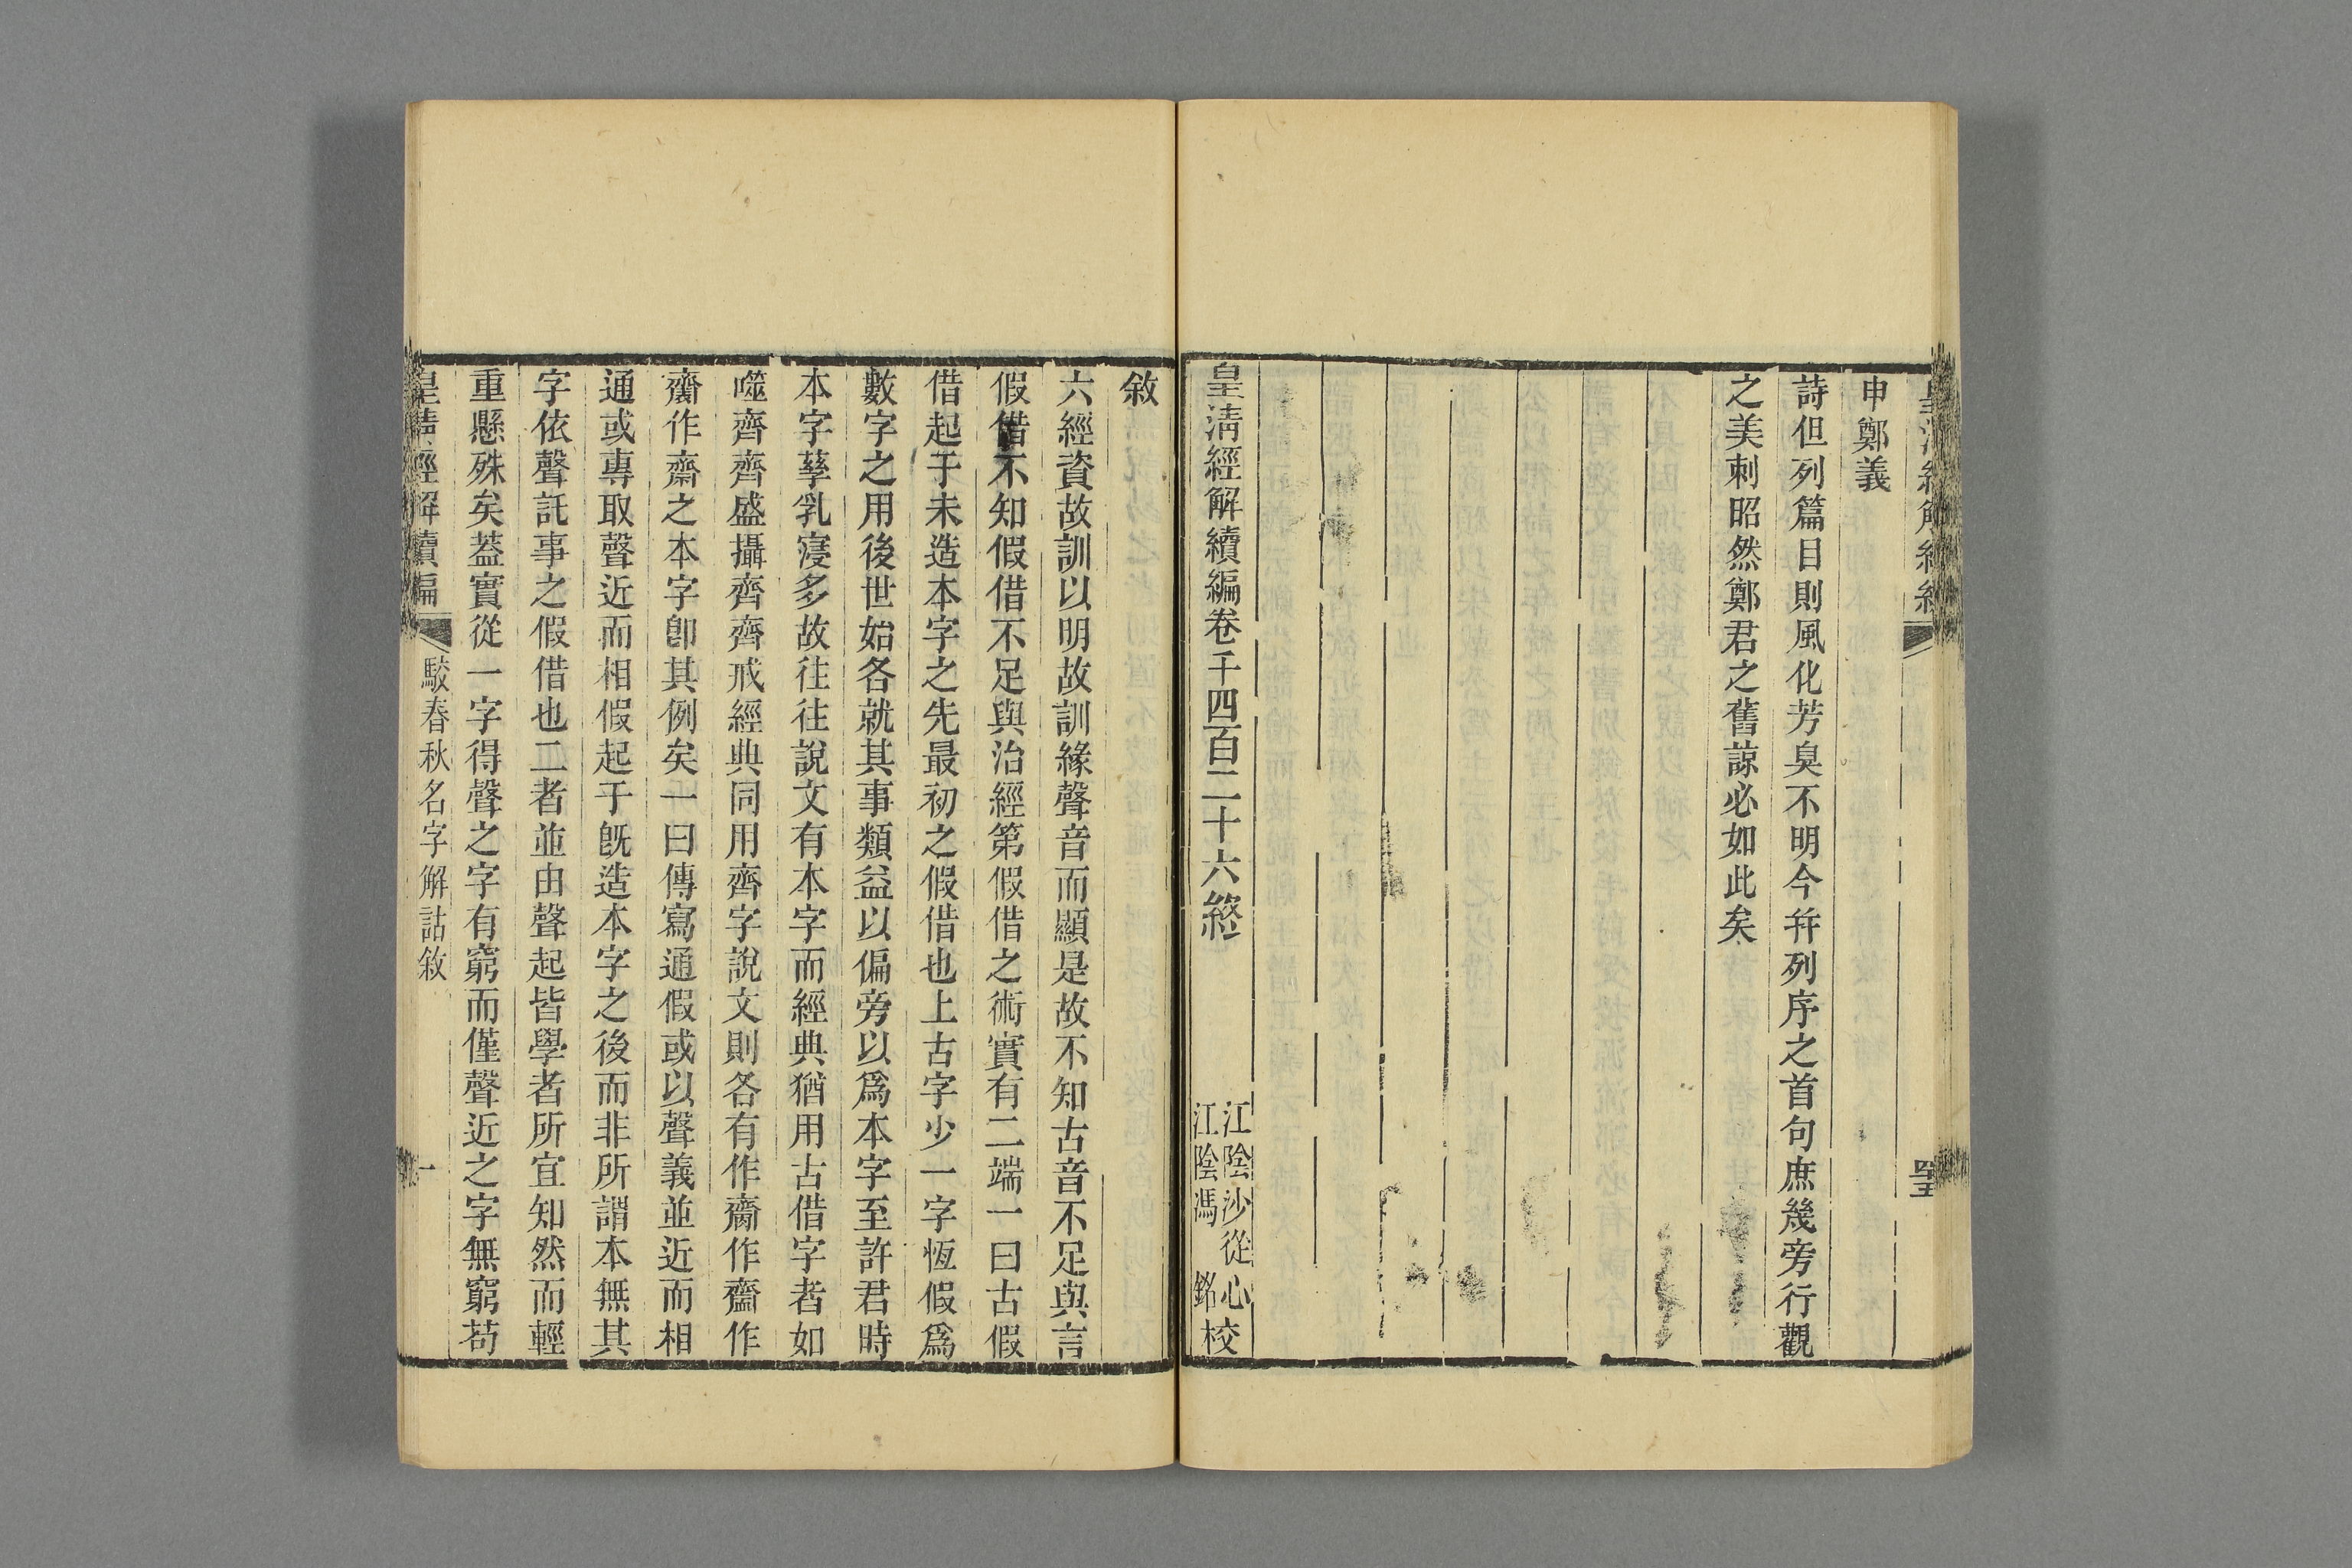 申鄭義
詩但列篇目則風化芳臭不明今并列序之首句庶幾旁行觀
之美刺昭然鄭君之舊諒必如此矣
皇淸經解續編卷千四百二十六終
江陰沙從心校
江陰馮銘校
敘
六經資故訓以明故訓緣聲音而顯是故不知古音不足與言
假借不知假借不足與治經第假借之術實有二端一曰古假
借起于未造本字之先最初之假借也上古字少一字恆假爲
數字之用後世始各就其事類益以偏旁以爲本字至許君時
本字孳乳寖多故往往說文有本字而經典猶用古借字者如
噬齊齊盛攝齊齊戒經典同用齊字說文則各有作臍作齍作
齌作齋之本字卽其例矣一曰傳寫通假或以聲義並近而相
通或專取聲近而相假起于旣造本字之後而非所謂本無其
字依聲託事之假借也二者並由聲起皆學者所宜知然而輕
重懸殊矣葢實從一字得聲之字有窮而僅聲近之字無窮苟
皇淸經解續編
駮春秋名字解詁敘
一